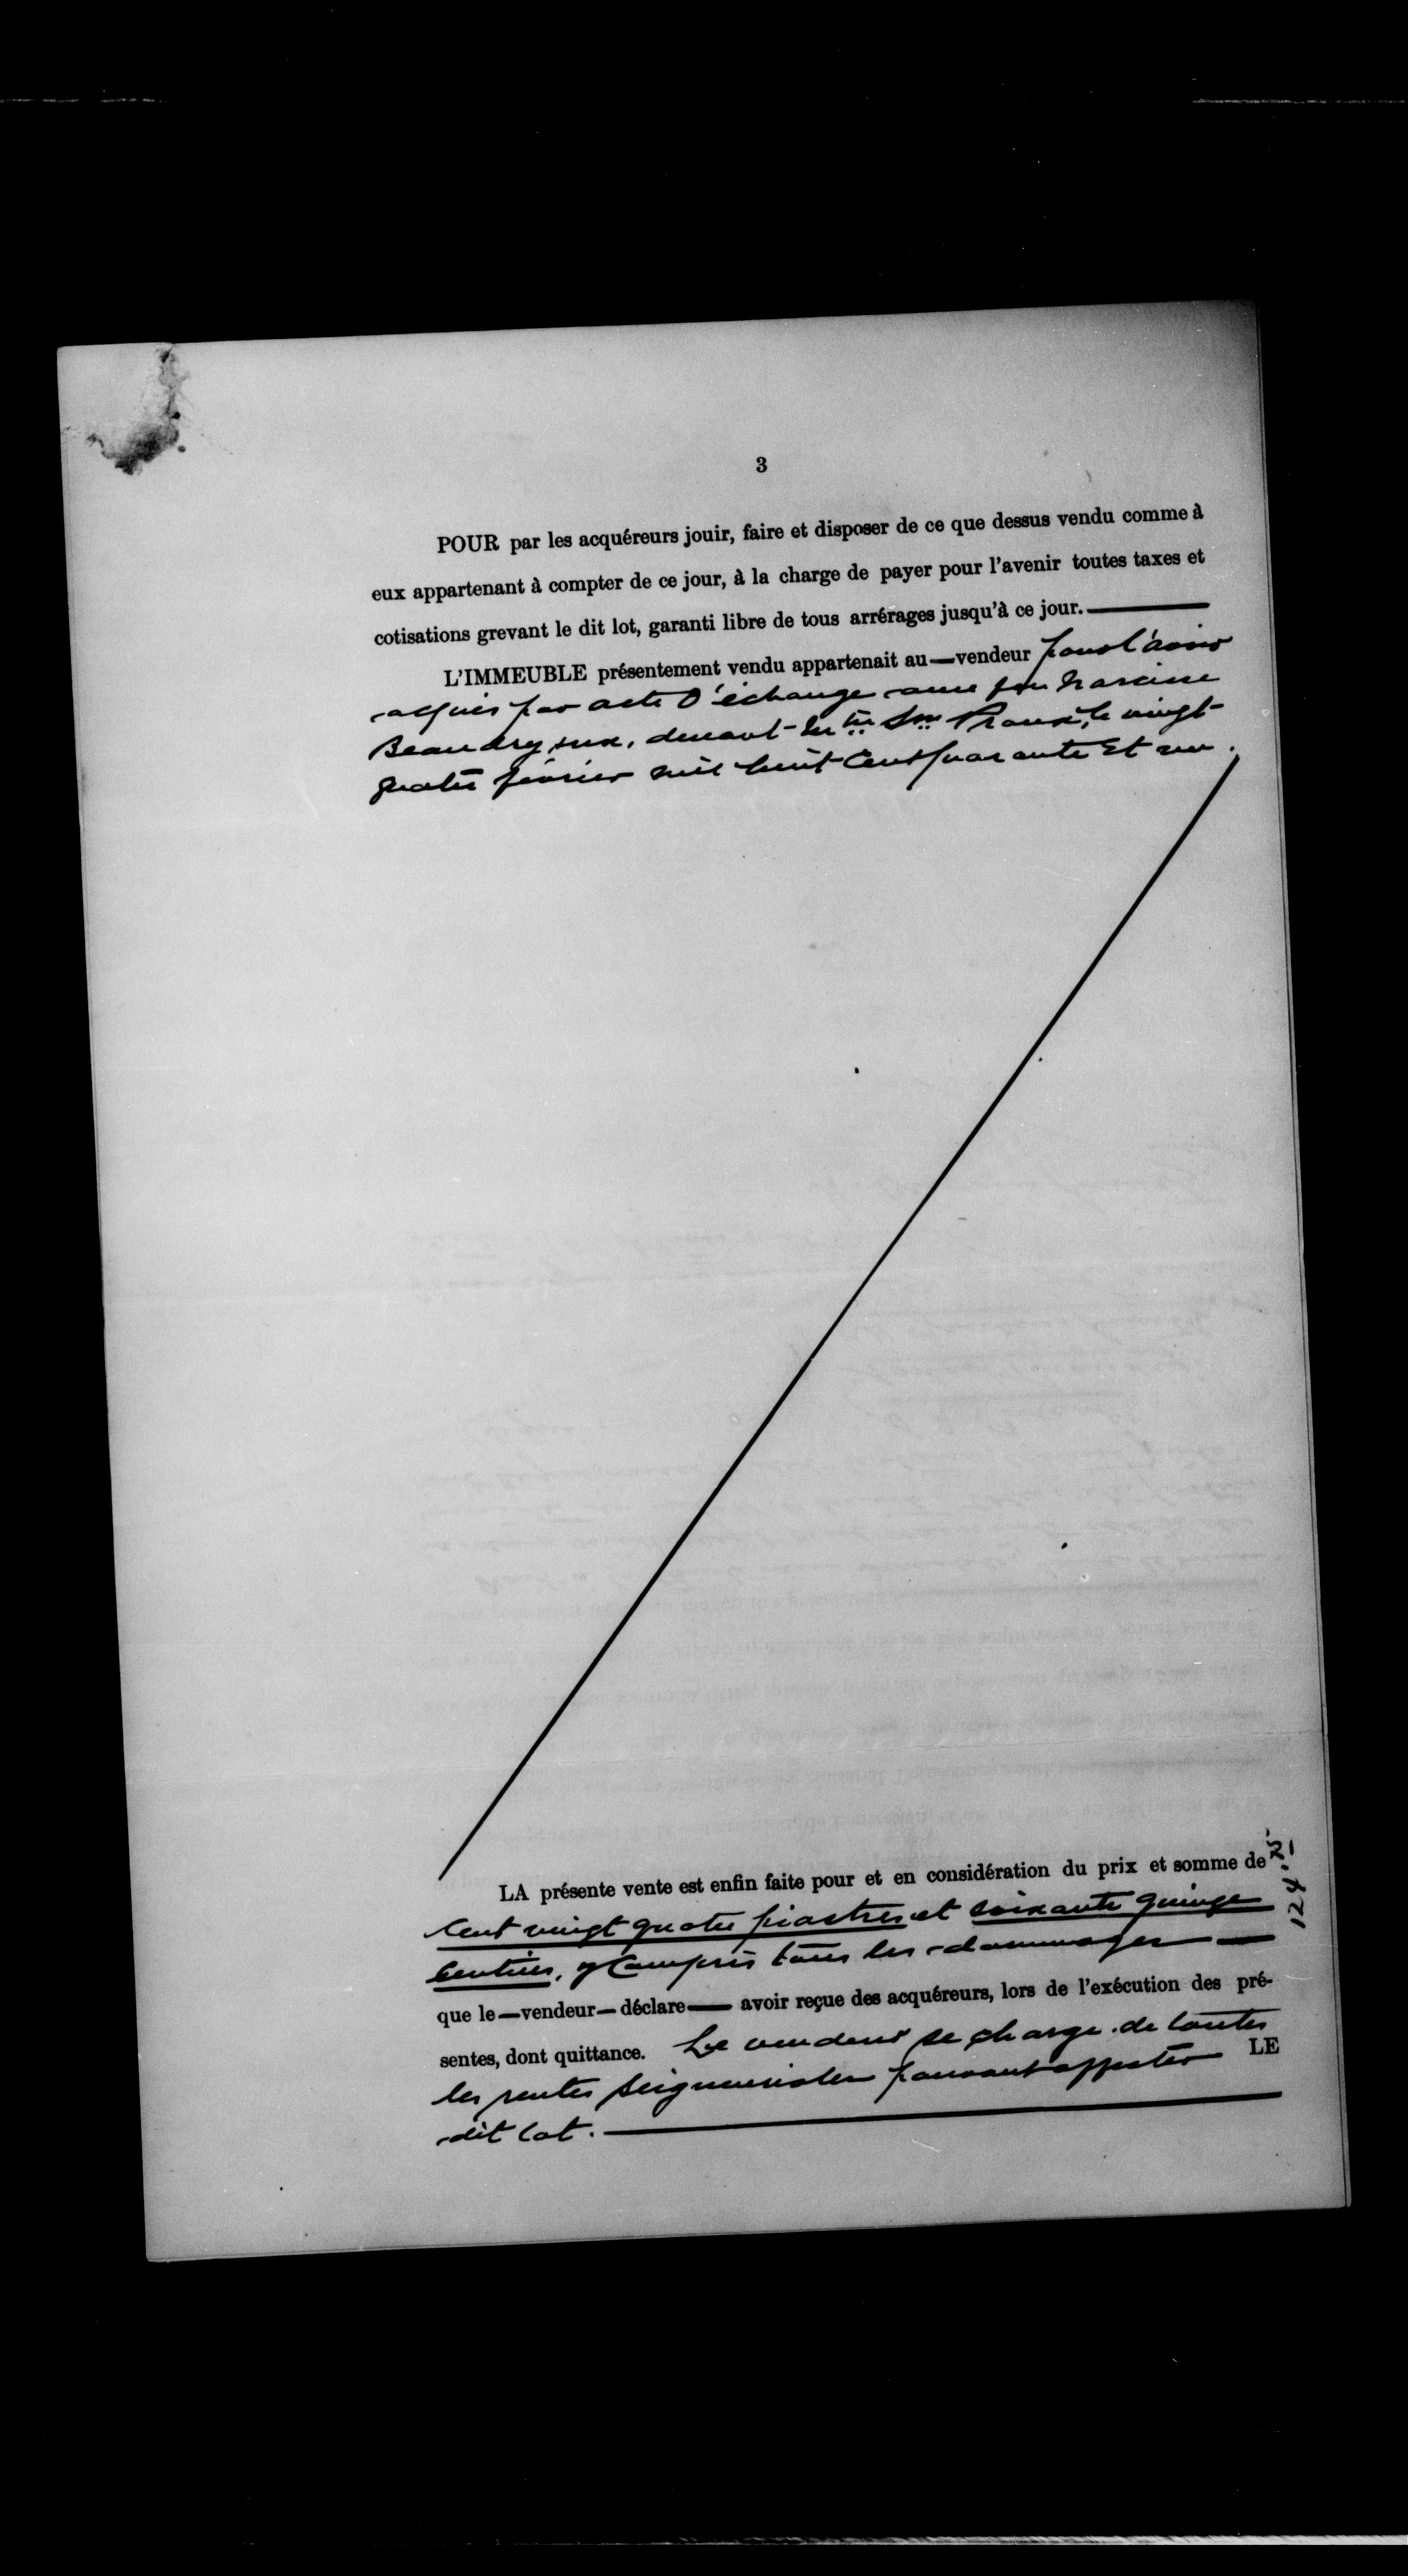 3
POUR par les acquéreurs jouir, faire et disposer de ce que dessus vendu comme à
eux appartenant à compter de ce jour, à la charge de payer pour l'avenir toutes taxes et
cotisations grevant le dit lot, garanti libre de tous arrérages jusqu'à ce jour.—
L'IMMEUBLE présentement vendu appartenait au—vendeur pour l'avoir
acquis par acte d'échange avec feu Narcisse
Beaudry, devant le vingt-
quatre février mil huit cent quarante et un.
LA présente vente est enfin faite pour et en considération du prix et somme de
124.75
Cent vingt quatre piastres et soixante quinze
centins, y compris tous les dommages —
que le—vendeur—déclare— avoir reçue des acquéreurs, lors de l'exécution des pré-
sentes, dont quittance. Le vendeur se charge de toutes
les rentes seigneuriales pouvant affecter LE
dit lot.—